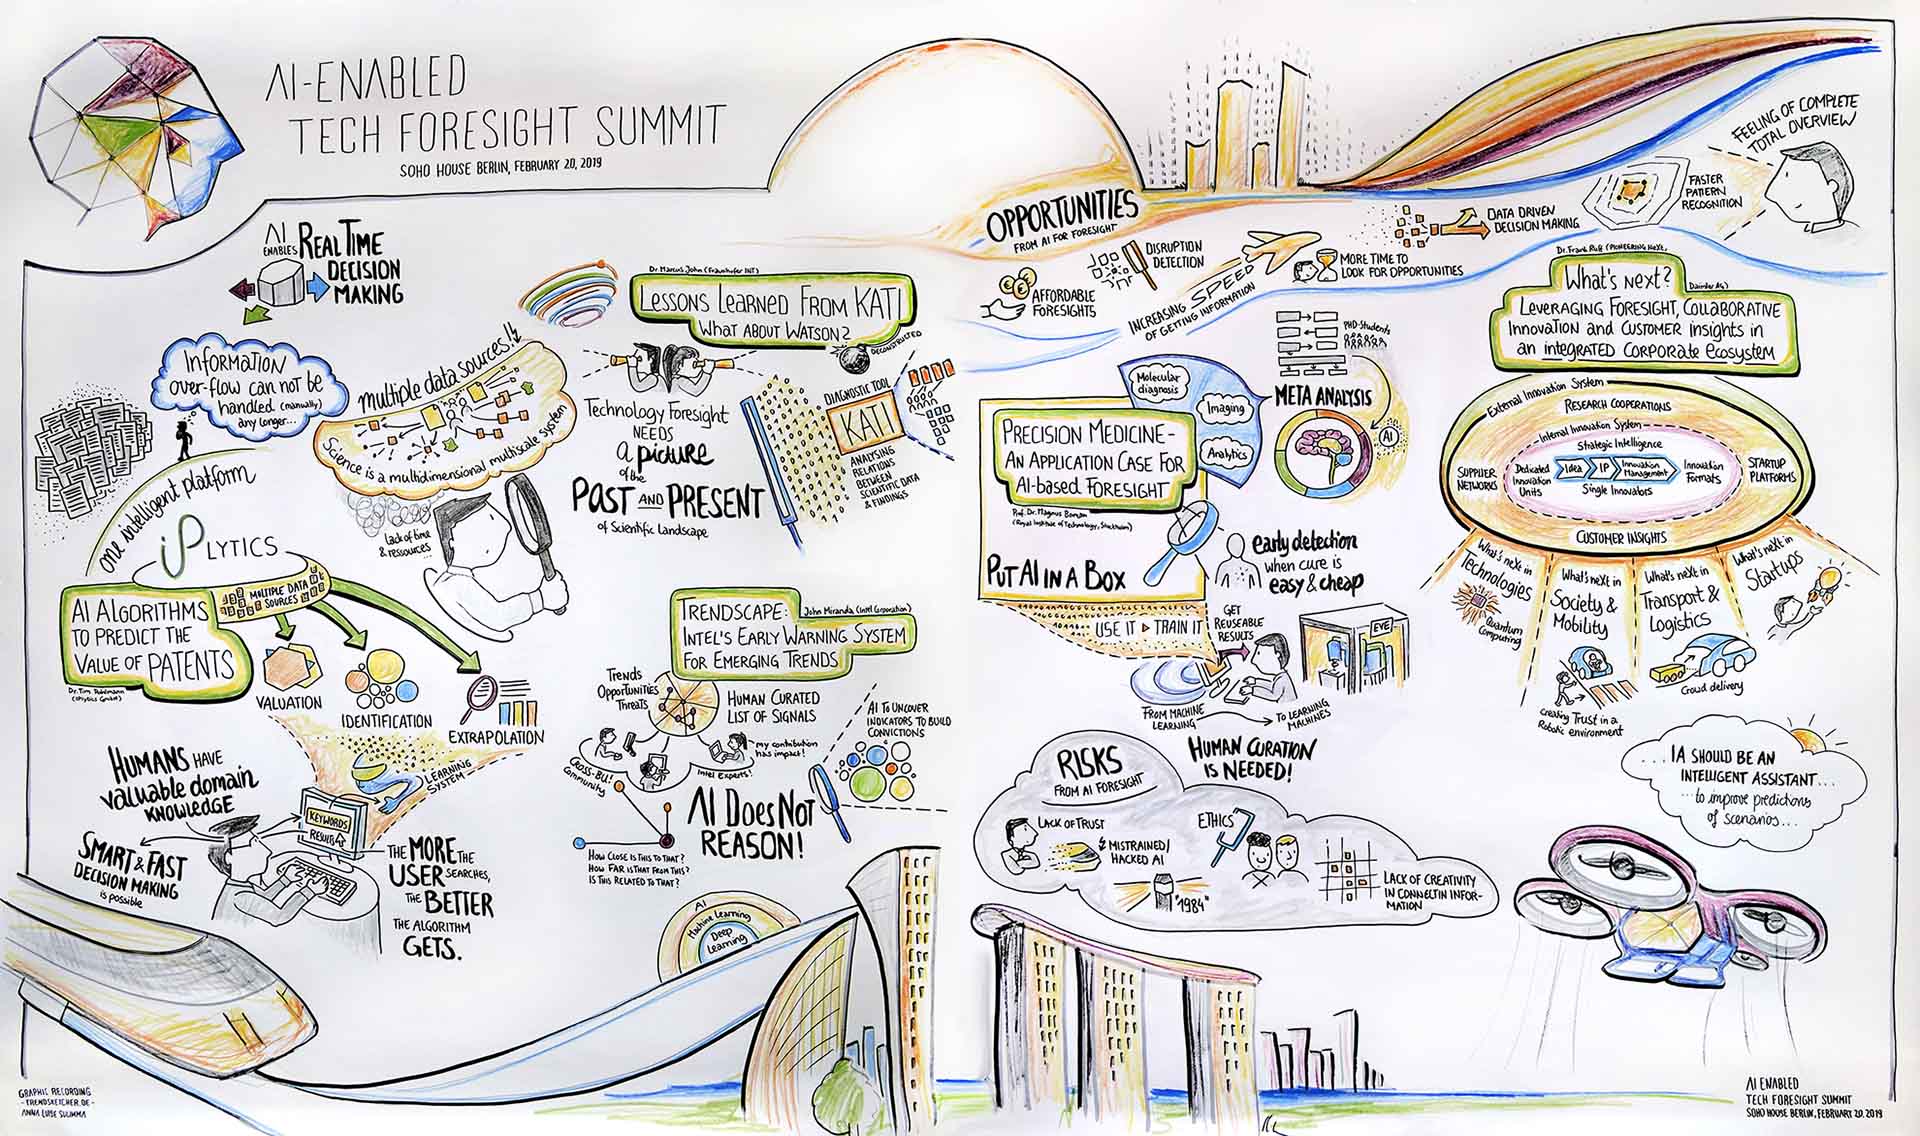 AI-ENABLED
TECH FORESIGHT SUMMIT
SOHO HOUSE BERLIN, FEBRUARY 20, 2019
AI
ENABLES REAL TIME
DECISION
MAKING
INFORMATION
over-flow can not be
handled (manually)
any longer...
multiple data sources!
Science is a multidimensional multiscale system
Lack of time
& ressources...
one intelligent platform
iPLYTICS
MULTIPLE DATA
SOURCES
AI ALGORITHMS
TO PREDICT THE
VALUE OF PATENTS
Dr. Tim
VALUATION
IDENTIFICATION
EXTRAPOLATION
LEARNING
SYSTEM
HUMANS HAVE
valuable domain
KNOWLEDGE
SMART & FAST
DECISION MAKING
is possible
KEYWORDS
RESULTS
THE MORE THE
USER SEARCHES,
THE BETTER
THE ALGORITHM
GETS.
Dr. Marcus John (Fraunhofer INT)
LESSONS LEARNED FROM KATI
WHAT ABOUT WATSON?
DECONSTRUCTED
Technology Foresight
NEEDS
a picture
of the
PAST AND PRESENT
of Scientific Landscape
DIAGNOSTIC TOOL
KATI
ANALYSING
RELATIONS
BETWEEN
SCIENTIFIC DATA
& FINDINGS
TRENDSCAPE: John Miranda (Intel Corporation)
INTEL'S EARLY WARNING SYSTEM
FOR EMERGING TRENDS
Trends
Opportunities
Threats
HUMAN CURATED
LIST OF SIGNALS
my contribution
has impact!
CROSS-BU!
Community
Intel Experts!
AI TO UNCOVER
INDICATORS TO BUILD
CONVICTIONS
AI DOES NOT
REASON!
HOW CLOSE IS THIS TO THAT?
HOW FAR IS THAT FROM THIS?
IS THIS RELATED TO THAT?
AI
Machine Learning
Deep
Learning
OPPORTUNITIES
FROM AI FOR FORESIGHT
AFFORDABLE
FORESIGHTS
DISRUPTION
DETECTION
INCREASING SPEED
OF GETTING INFORMATION
MORE TIME TO
LOOK FOR OPPORTUNITIES
DATA DRIVEN
DECISION MAKING
FASTER
PATTERN
RECOGNITION
FEELING OF COMPLETE
TOTAL OVERVIEW
Molecular
diagnosis
Imaging
Analytics
PHD-Students
META ANALYSIS
AI
PRECISION MEDICINE-
AN APPLICATION CASE FOR
AI-based FORESIGHT
Prof. Dr. Magnus Boman
(Royal Institute of Technology, Stockholm)
PUT AI IN A BOX
early detection
when cure is
easy & cheap
USE IT ▷ TRAIN IT
GET
REUSEABLE
RESULTS
EVE
FROM MACHINE
LEARNING
TO LEARNING
MACHINES
HUMAN CURATION
IS NEEDED!
RISKS
FROM AI FORESIGHT
LACK OF TRUST
MISTRAINED/
HACKED AI
"1984"
ETHICS
LACK OF CREATIVITY
IN CONNECTIN INFOR-
MATION
Dr. Frank Ruff (PIONEERING NEXT,
Daimler AG)
What's next?
LEVERAGING FORESIGHT, COLLABORATIVE
INNOVATION AND CUSTOMER insights in
an integrated CORPORATE ecosystem
External Innovation System
RESEARCH COOPERATIONS
Internal Innovation System
Strategic Intelligence
SUPPLIER
NETWORKS
Dedicated
Innovation
Units
Idea
IP
Innovation
Management
Innovation
Formats
STARTUP
PLATFORMS
Single Innovators
CUSTOMER INSIGHTS
What's next in
Technologies
Quantum
Computing
What's next in
Society &
Mobility
creating Trust in a
Robotic environment
What's next in
Transport &
Logistics
Crowd delivery
What's next in
Startups
... IA SHOULD BE AN
INTELLIGENT ASSISTANT...
... to improve predictions
of scenarios...
GRAPHIC RECORDING
- TRENDSKETCHER.DE -
AI ENABLED
TECH FORESIGHT SUMMIT
SOHO HOUSE BERLIN, FEBRUARY 20, 2019